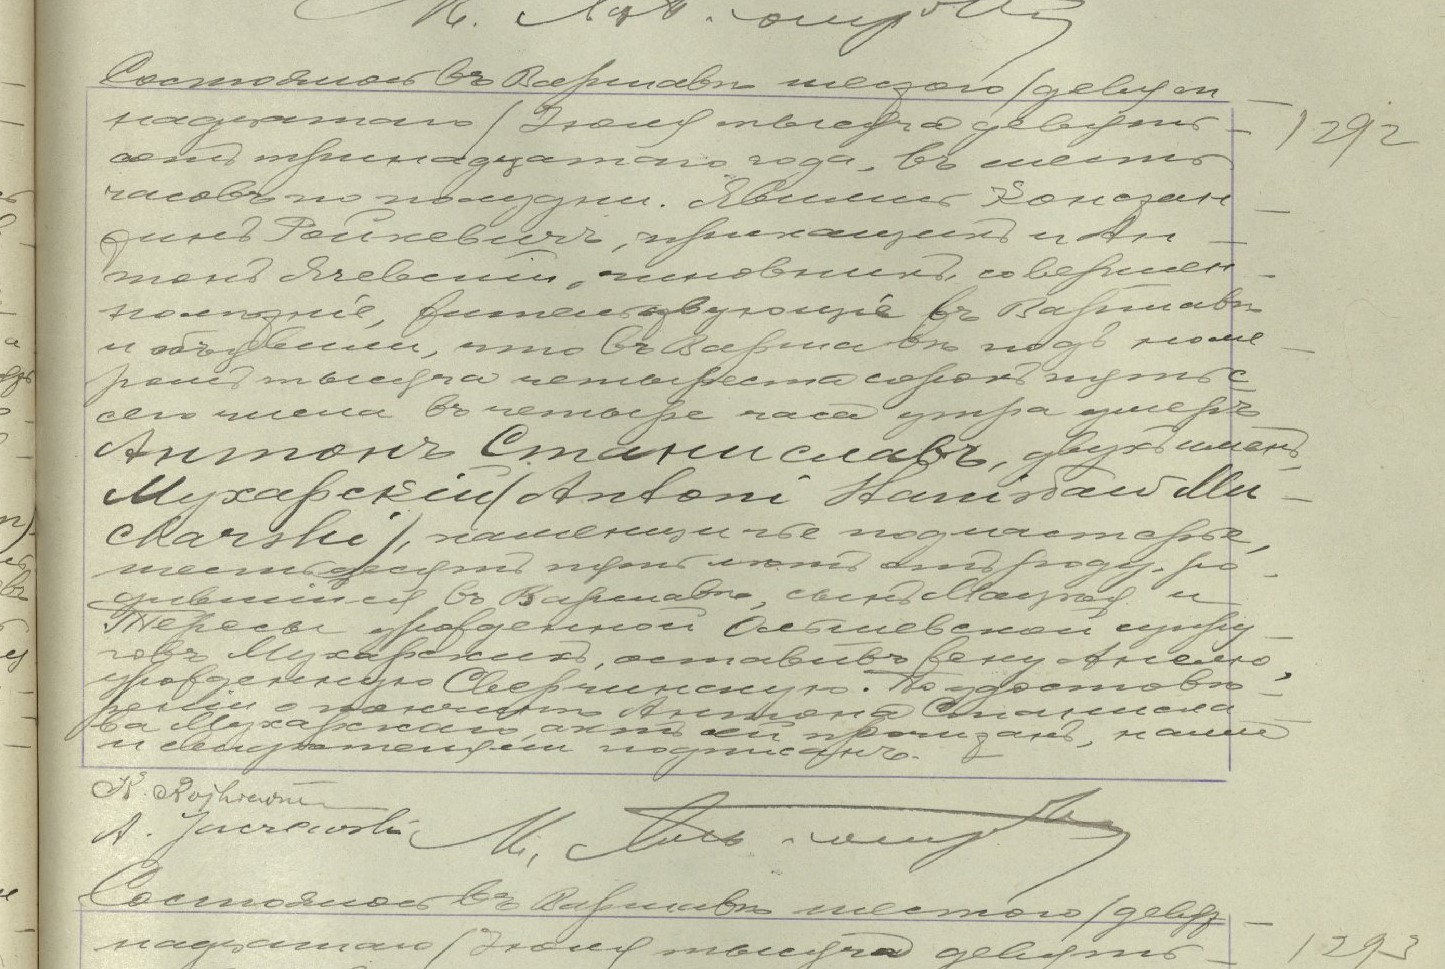 Состоялось въ Варшавѣ шестого /девят
надцатаго/ Іюля тысяча девять- 1292
сотъ тринадцатаго года, въ шесть
часовъ по полудни. Явились Констан
тинъ Ройкевичъ, прикащикъ и Ан
тонъ Ячевскій, чиновникъ, совершен
нолѣтніе, жительствующіе въ Варшавѣ
и объявили, что въ Варшавѣ подъ номе
ромъ тысяча четыреста сорокъ пять с
сего числа въ четыре часа утра умеръ
Антонъ Станиславъ, двухъ именъ,
Мухарскій /Antoni Stanisław Mu
charski/, каменщичье подмастерье,
шестьдесятъ пять лѣтъ отъ роду, ро
дившійся въ Варшавѣ, сынъ и
Тересы урожденной Ольшевской супру
говъ Мухарскихъ, оставивъ жену Анелю,
урожденную Сверчинскую. По удостовѣ
реніи о кончинѣ Антона Станисла
ва Мухарскаго, актъ сей прочитанъ, нами
и свидѣтелями подписанъ.
K. Rojkiewicz
A. Jaczewski М.
Состоялось въ Варшавѣ шестого /девят
надцатаго/ Іюля тысяча девять- 1293